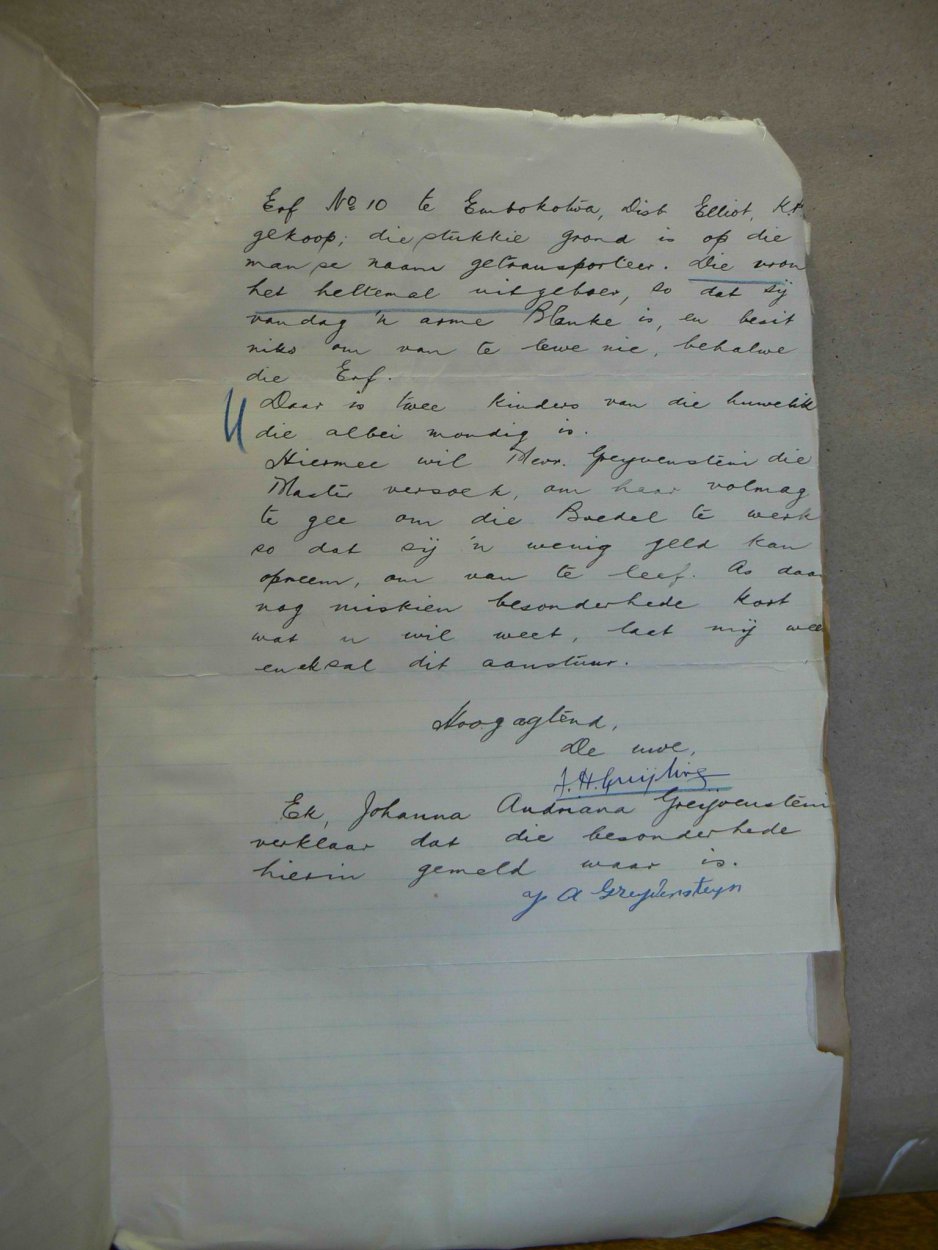 Erf No 10 te Embokotwa, Dist Elliot, K.P.
gekoop; die stukkie grond is op die
man se naam getransporteer. Die vrou
het heltemal uitgeboer, so dat sij
vandag 'n arme Blanke is, en besit
niks om van te lewe nie, behalwe
die Erf.
Daar is twee kinders van die huwelik
die albei mondig is.
Hiermee wil Mevr. Greyvenstein die
Master versoek, om haar volmag
te gee om die Boedel te werk
so dat sij 'n wenig geld kan
opneem, om van te leef. As daar
nog miskien besonderhede kort
wat u wil weet, laat mij weet
en ek sal dit aanstuur.
Hoogagtend,
De uwe,
J. H. Greijling
Ek, Johanna Andriana Greyvenstein
verklaar dat die besonderhede
hierin gemeld waar is.
J A Greyvensteyn